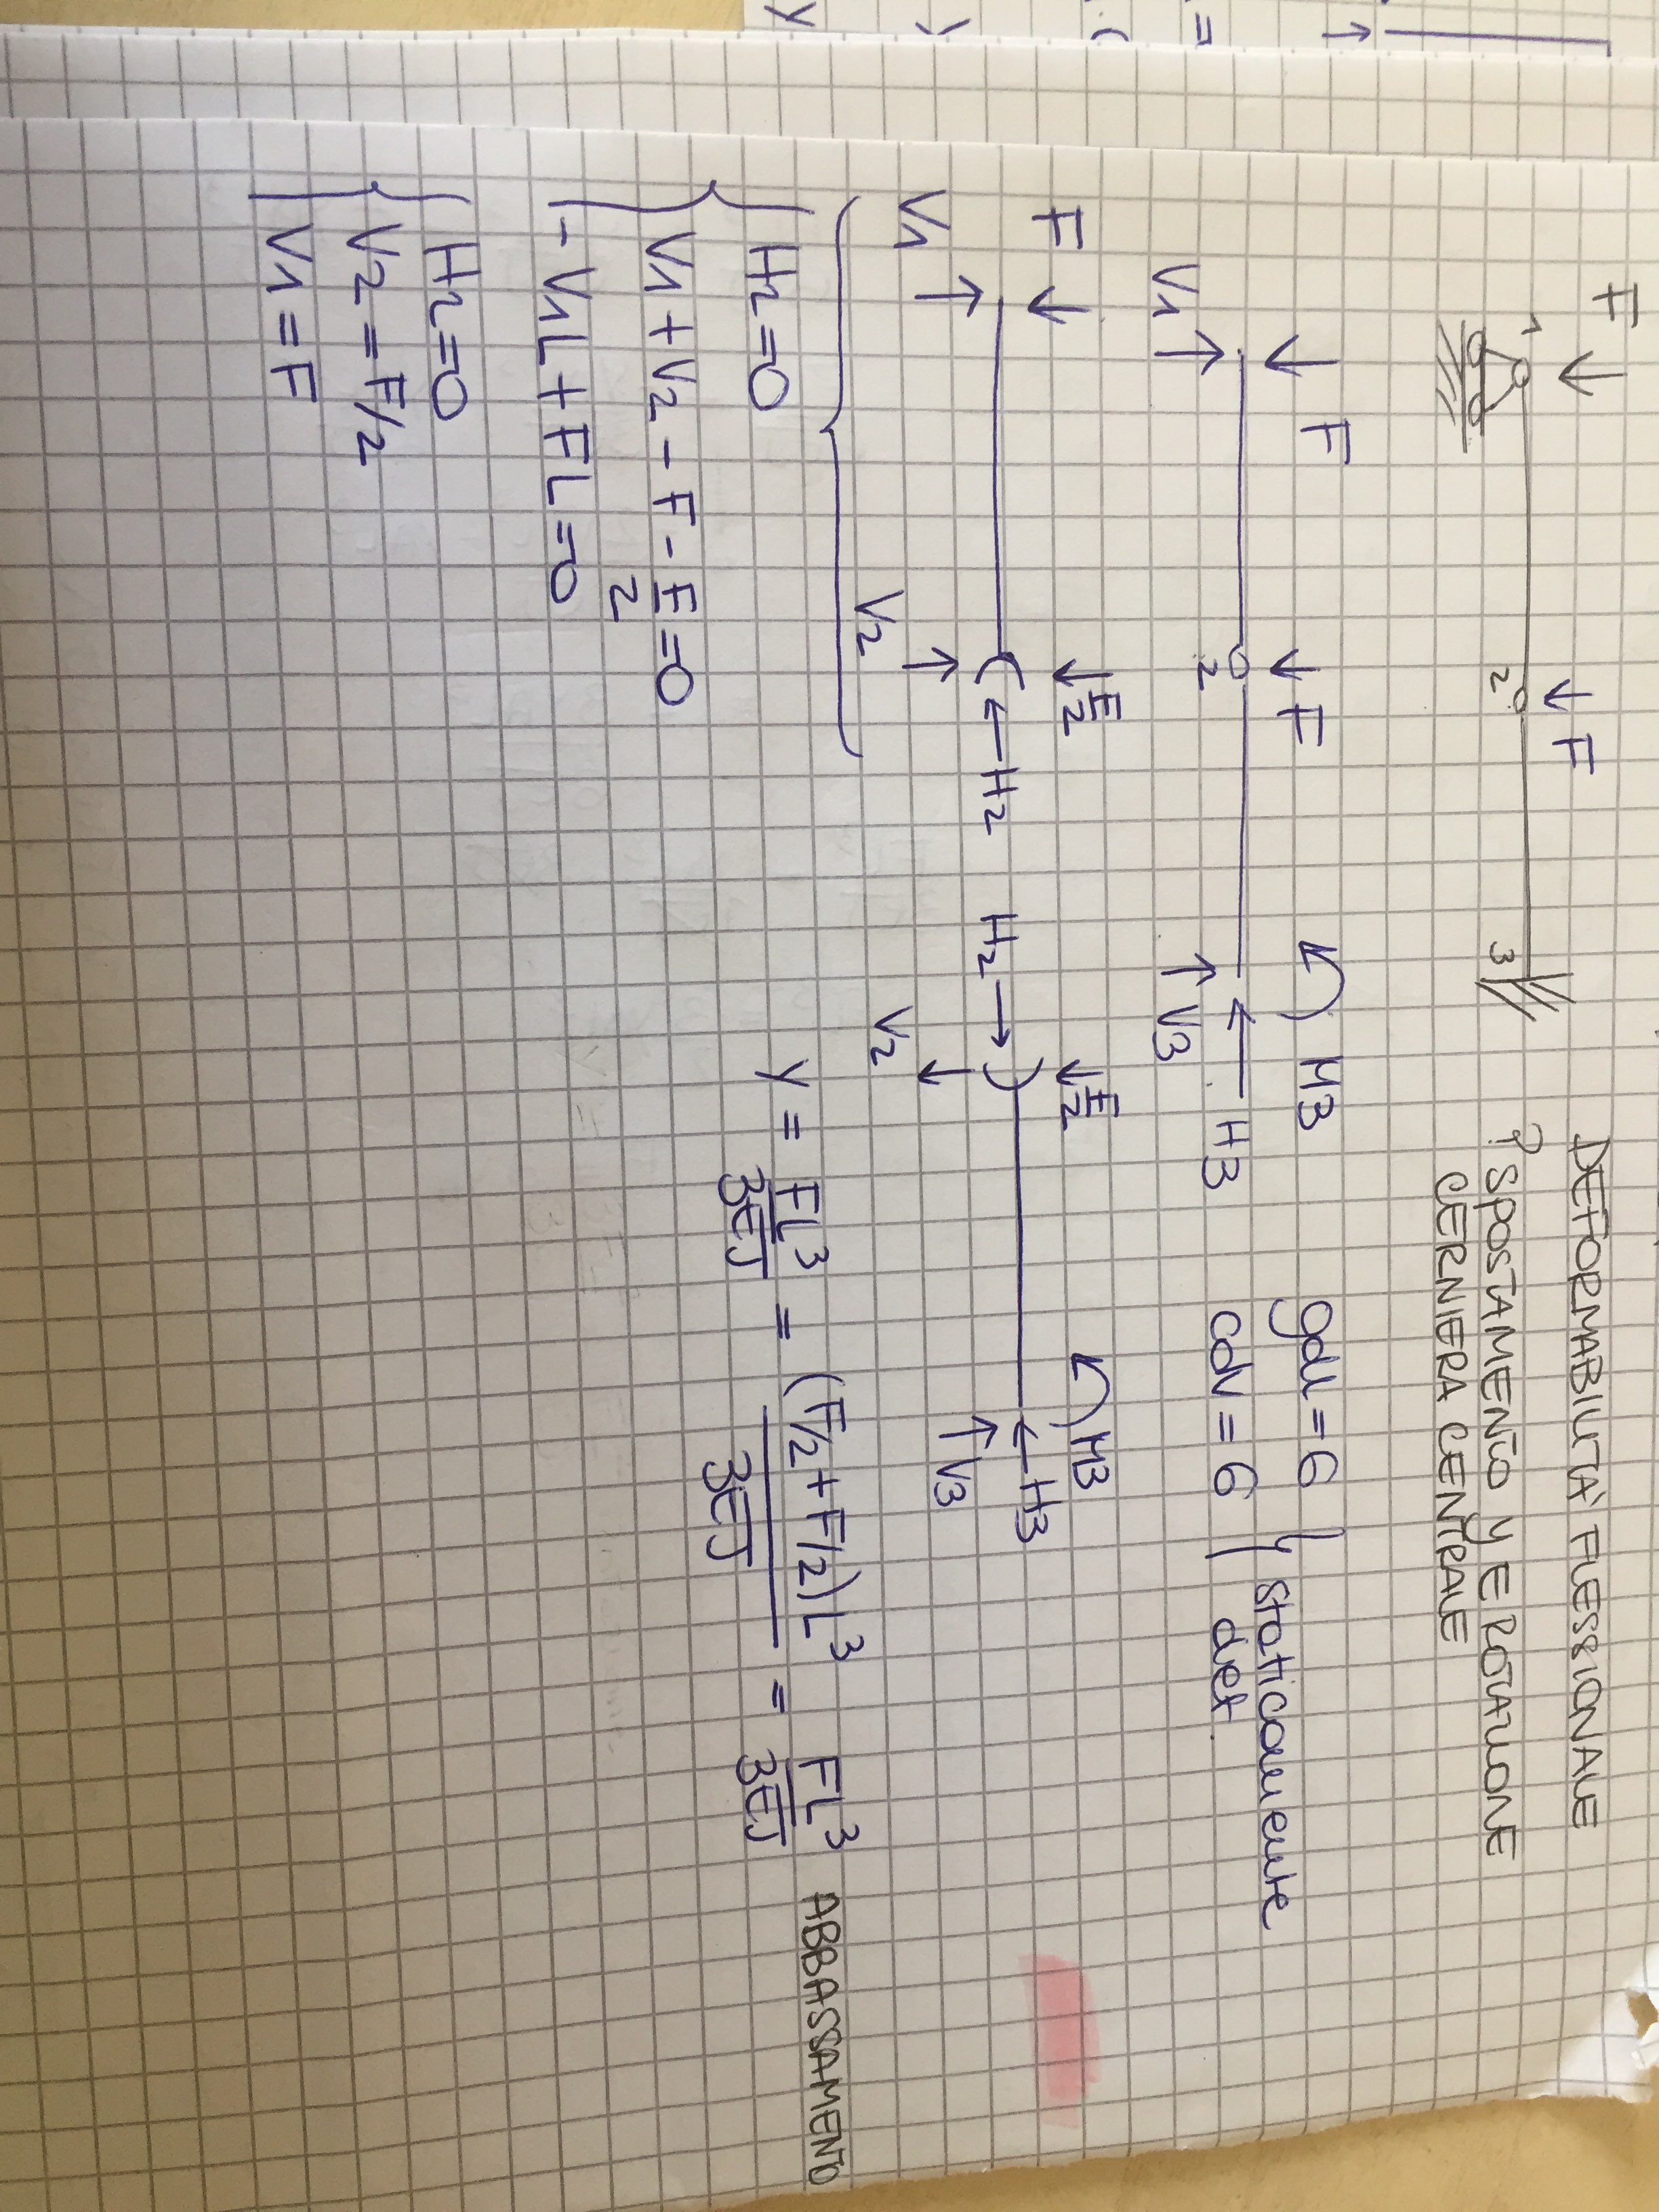 F
F
1
2
3
DEFORMABILITÀ FLESSIONALE
? SPOSTAMENTO Y E ROTAZIONE
CERNIERA CENTRALE
F
F
V1
2
M3
H3
V3
gdl = 6
cdv = 6
staticamente
det.
F
V1
F/2
H2
V2
H2
F/2
V2
M3
H3
V3
H2=0
V1+V2-F-F/2=0
-V1L+FL=0
H2=0
V2=F/2
V1=F
Y = FL³/3EJ = (F/2+F/2)L³/3EJ = FL³/3EJ ABBASSAMENTO